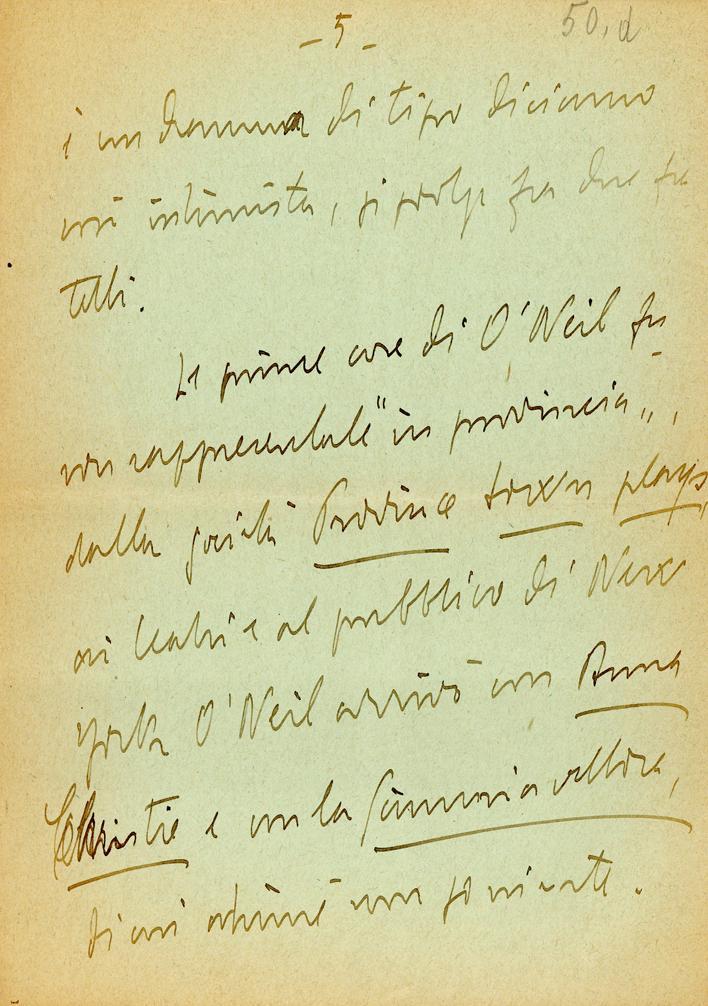 - 5 -
50, d
è un dramma di tipo diciamo
così intimista, si svolge fra due fra
telli.
Le prime cose di O'Neil fu
ron rappresentate "in provincia",
dalla società Province town plays,
ai teatri e al pubblico di New
York O'Neil arrivò con Anna
Christie e con la Scimmia vellosa,
di cui ahimè non so niente.